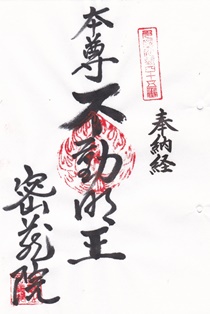 奉納経
本尊 不動明王
密蔵院